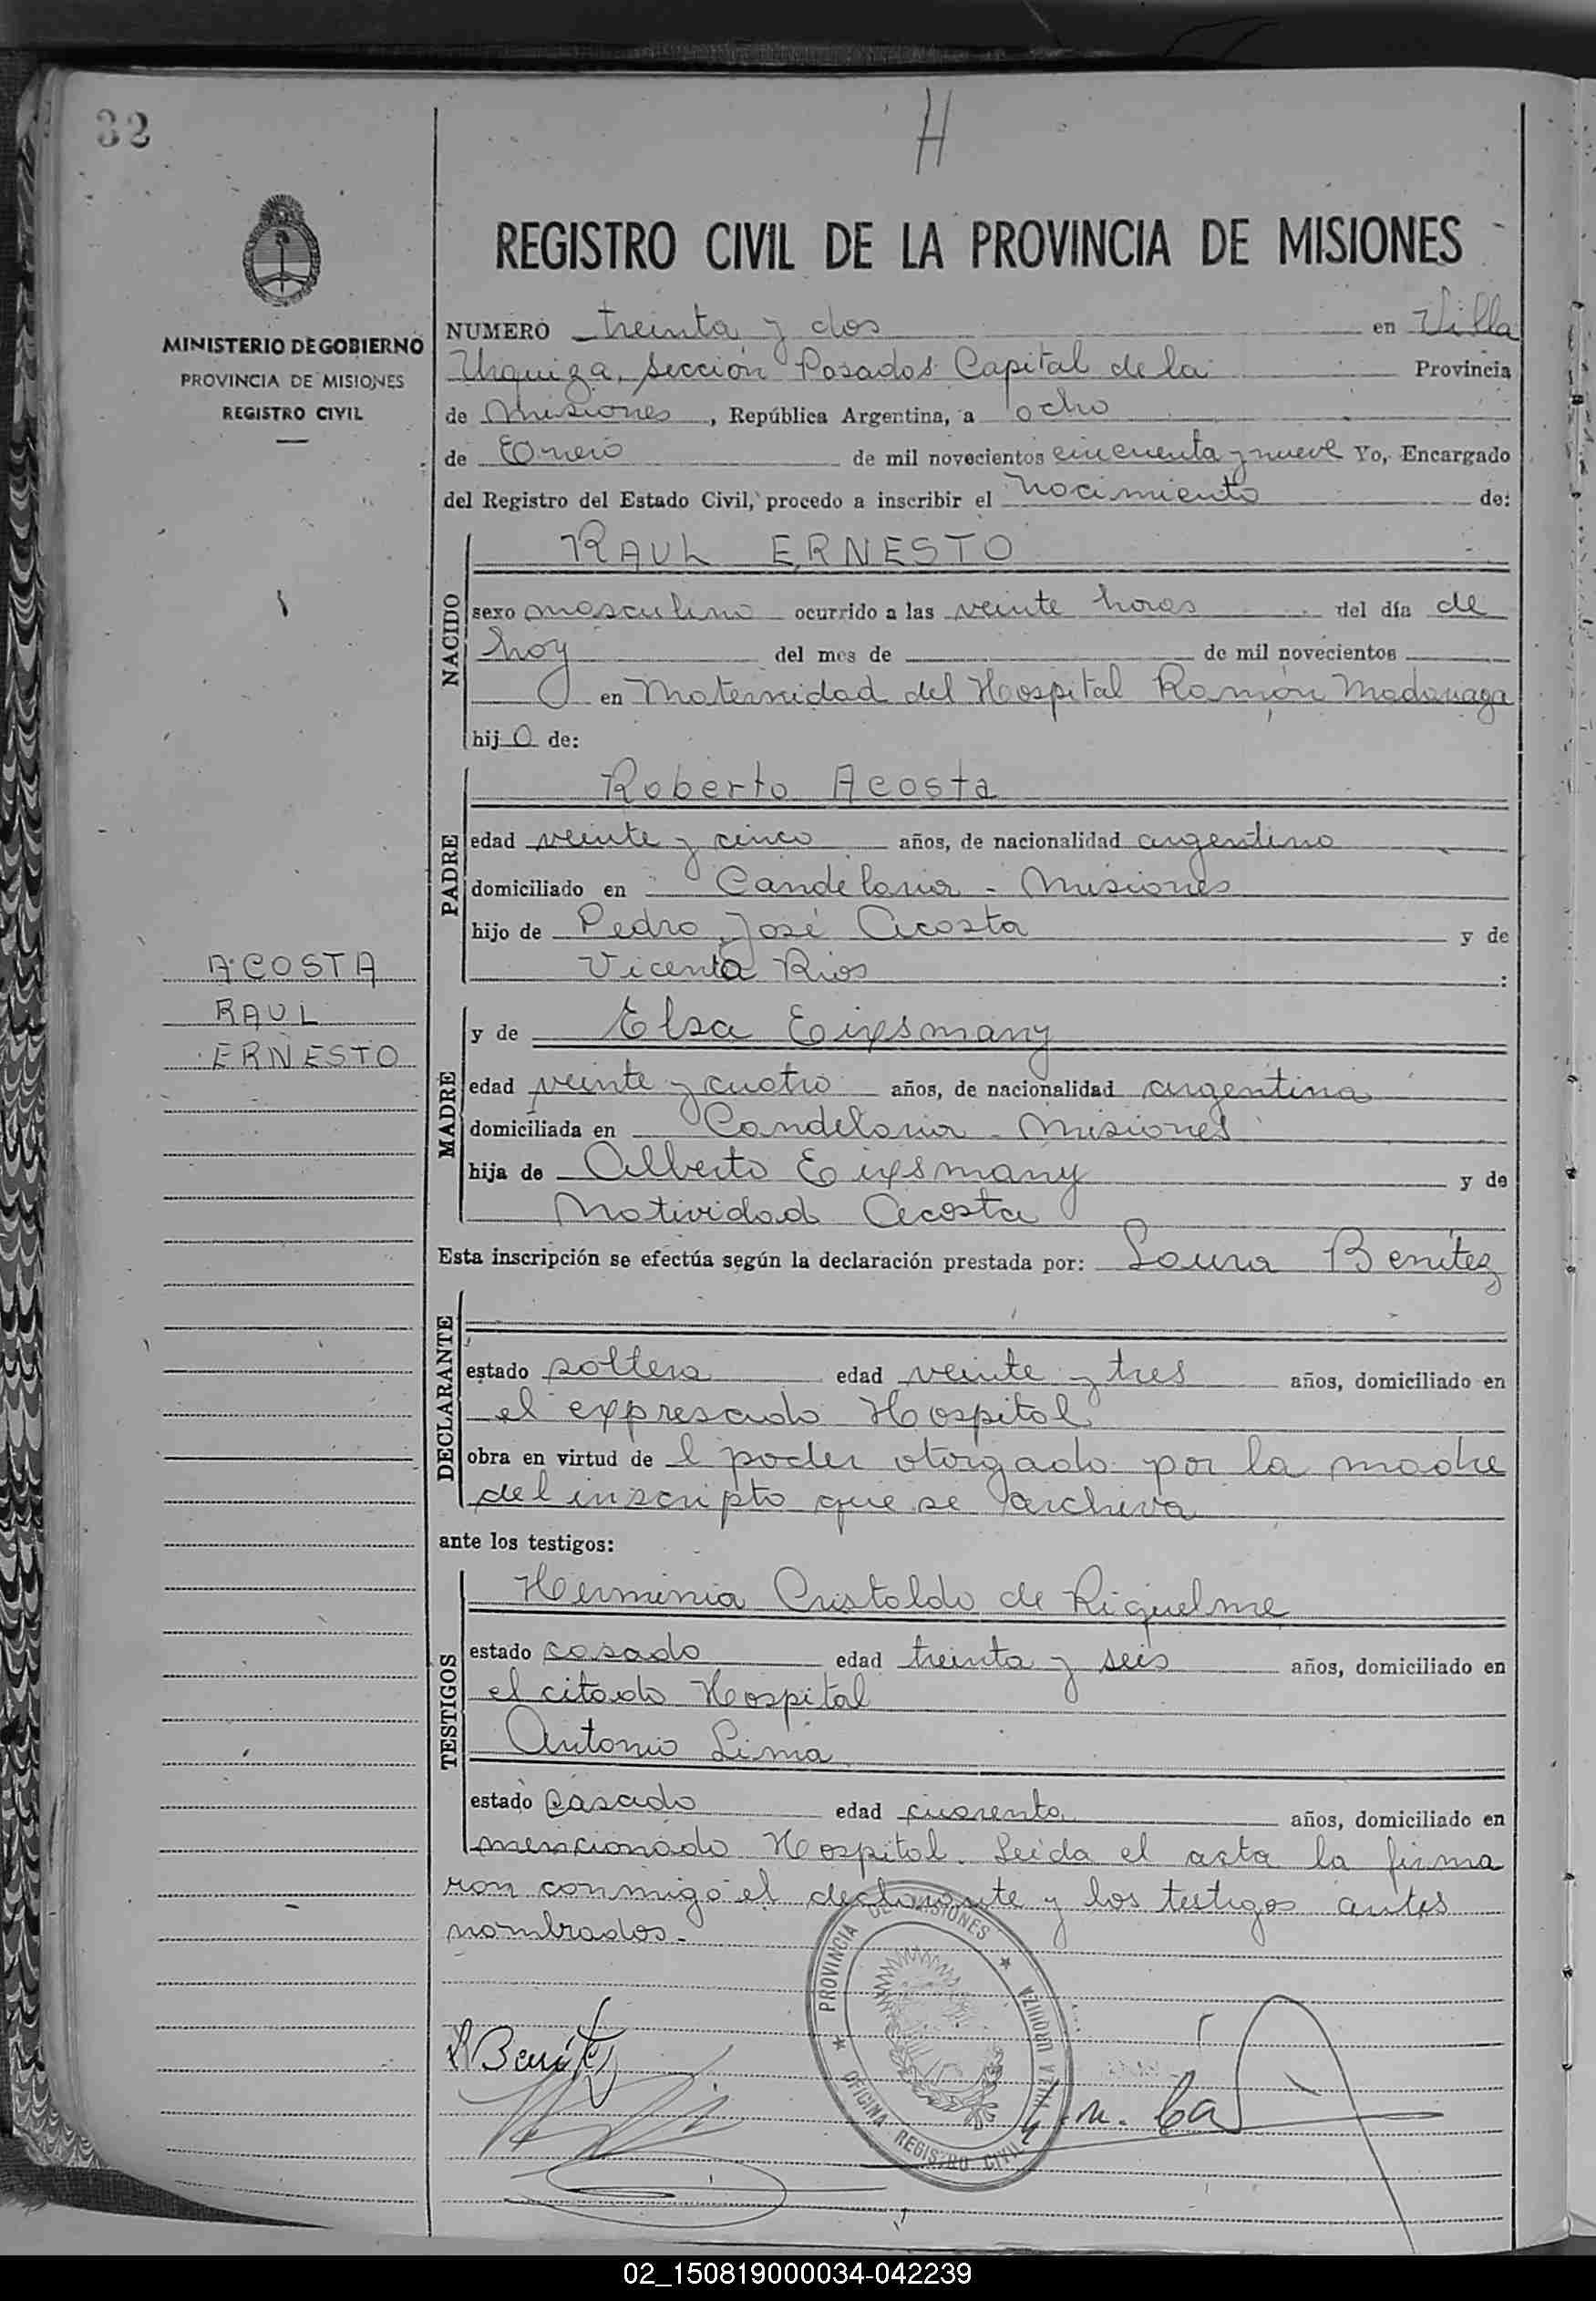 32
H
REGISTRO CIVIL DE LA PROVINCIA DE MISIONES
MINISTERIO DE GOBIERNO
PROVINCIA DE MISIONES
REGISTRO CIVIL
NUMERO treinta y dos en Villa
Urquiza, sección Posadas Capital de la Provincia
de Misiones, República Argentina, a ocho
de Enero de mil novecientos cincuenta y nueve Yo, Encargado
del Registro del Estado Civil, procedo a inscribir el nacimiento de:
NACIDO
RAUL ERNESTO
sexo masculino ocurrido a las veinte horas del día de
hoy del mes de de mil novecientos
en Maternidad del Hospital Ramón Madariaga
hijo de:
PADRE
Roberto Acosta
edad veinte y cinco años, de nacionalidad argentino
domiciliado en Candelaria - Misiones
hijo de Pedro José Acosta y de
Vicenta Rios :
ACOSTA
RAUL
ERNESTO
MADRE
y de Elsa Eixsmany
edad veinte y cuatro años, de nacionalidad argentina
domiciliada en Candelaria - Misiones
hija de Alberto Eixsmany y de
Natividad Acosta
Esta inscripción se efectúa según la declaración prestada por: Laura Benítez
DECLARANTE
estado soltera edad veinte y tres años, domiciliado en
el expresado Hospital
obra en virtud de l poder otorgado por la madre
del inscripto que se archiva
ante los testigos:
TESTIGOS
Herminia Cristaldo de Riquelme
estado casado edad treinta y seis años, domiciliado en
el citado Hospital
Antonio Lima
estado casado edad cuarenta años, domiciliado en
mencionado Hospital. Leída el acta la firma
ron conmigo el declarante y los testigos antes
nombrados.-
PROVINCIA DE MISIONES
VILLA URQUIZA
OFICINA REGISTRO CIVIL
L Benítez
02_150819000034-042239